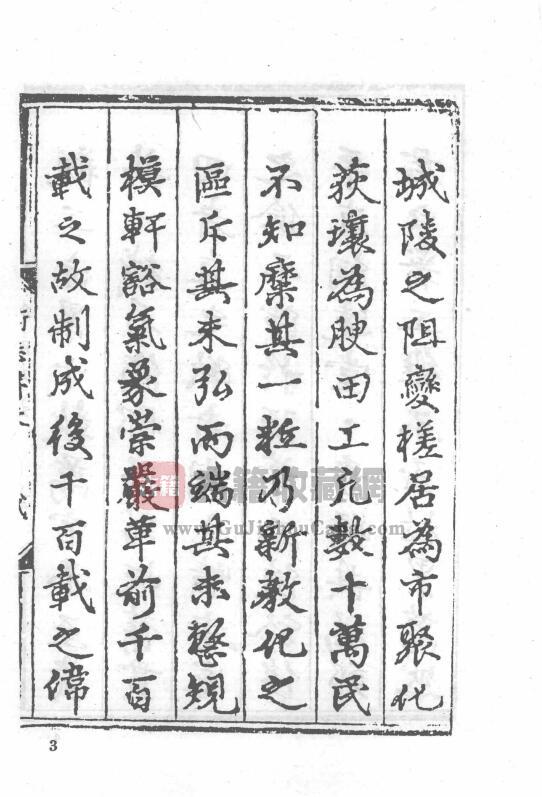 城陵之阻變槎居為市聚化
荻壤為腴田工充數十萬民
不知糜其一粒乃新教化之
區斥其未弘而端其未整規
模軒豁氣象崇嚴革前千百
載之故制成後千百載之偉
古籍收藏網
www.GuJiShouCang.com
3